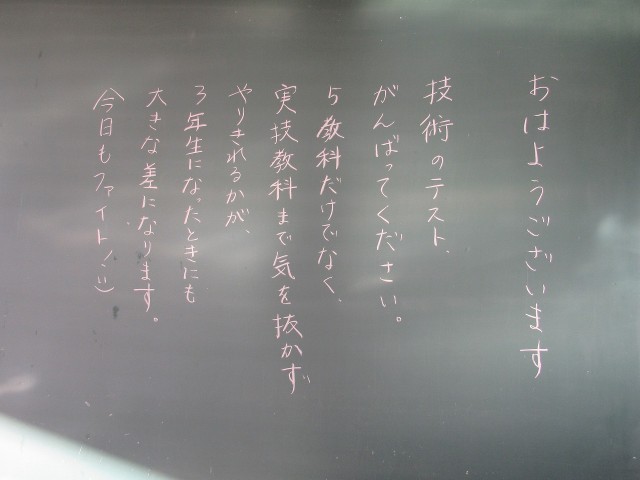 おはようございます
技術のテスト、
がんばってください。
5教科だけでなく、
実技教科まで気を抜かず
やりきれるかが、
3年生になったときにも
大きな差になります。
今日もファイト(^^)